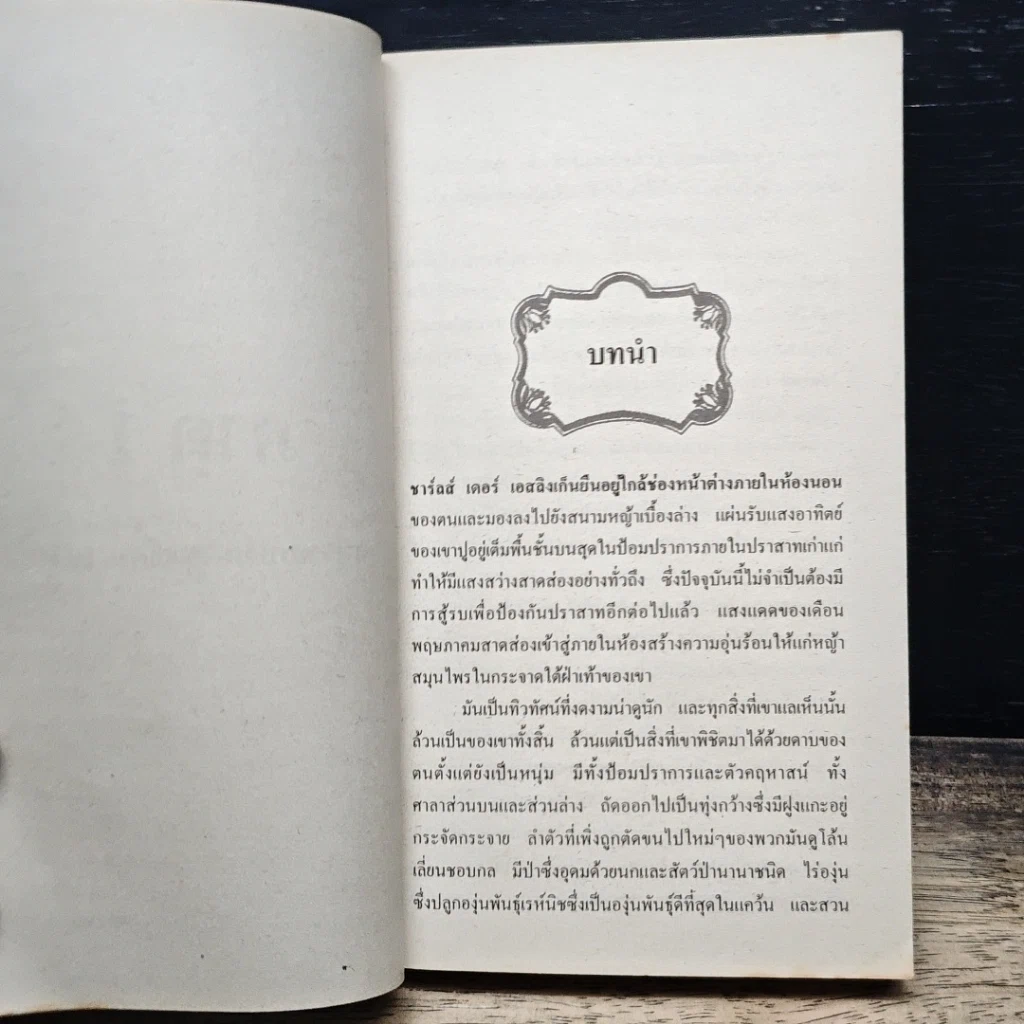 บทนำ
ชาร์ลส์ เดอร์ เอสลิงเก็นยืนอยู่ใกล้ช่องหน้าต่างภายในห้องนอน
ของตนและมองลงไปยังสนามหญ้าเบื้องล่าง แผ่นรับแสงอาทิตย์
ของเขาปูอยู่เต็มพื้นชั้นบนสุดในป้อมปราการภายในปราสาทเก่าแก่
ทำให้มีแสงสว่างสาดส่องอย่างทั่วถึง ซึ่งปัจจุบันนี้ไม่จำเป็นต้องมี
การสู้รบเพื่อป้องกันปราสาทอีกต่อไปแล้ว แสงแดดของเดือน
พฤษภาคมสาดส่องเข้าสู่ภายในห้องสร้างความอุ่นร้อนให้แก่หญ้า
สมุนไพรในกระจาดใต้ฝ่าเท้าของเขา
มันเป็นทิวทัศน์ที่งดงามน่าดูนัก และทุกสิ่งที่เขาแลเห็นนั้น
ล้วนเป็นของเขาทั้งสิ้น ล้วนแต่เป็นสิ่งที่เขาพิชิตมาได้ด้วยดาบของ
ตนตั้งแต่ยังเป็นหนุ่ม มีทั้งป้อมปราการและตัวคฤหาสน์ ทั้ง
ศาลาส่วนบนและส่วนล่าง ถัดออกไปเป็นทุ่งกว้างซึ่งมีฝูงแกะอยู่
กระจัดกระจาย ลำตัวที่เพิ่งถูกตัดขนไปใหม่ๆของพวกมันดูโล้น
เลี่ยนชอบกล มีป่าซึ่งอุดมด้วยนกและสัตว์ป่านานาชนิด ไร่องุ่น
ซึ่งปลูกองุ่นพันธุ์เรห์นิชซึ่งเป็นองุ่นพันธุ์ดีที่สุดในแคว้น และสวน